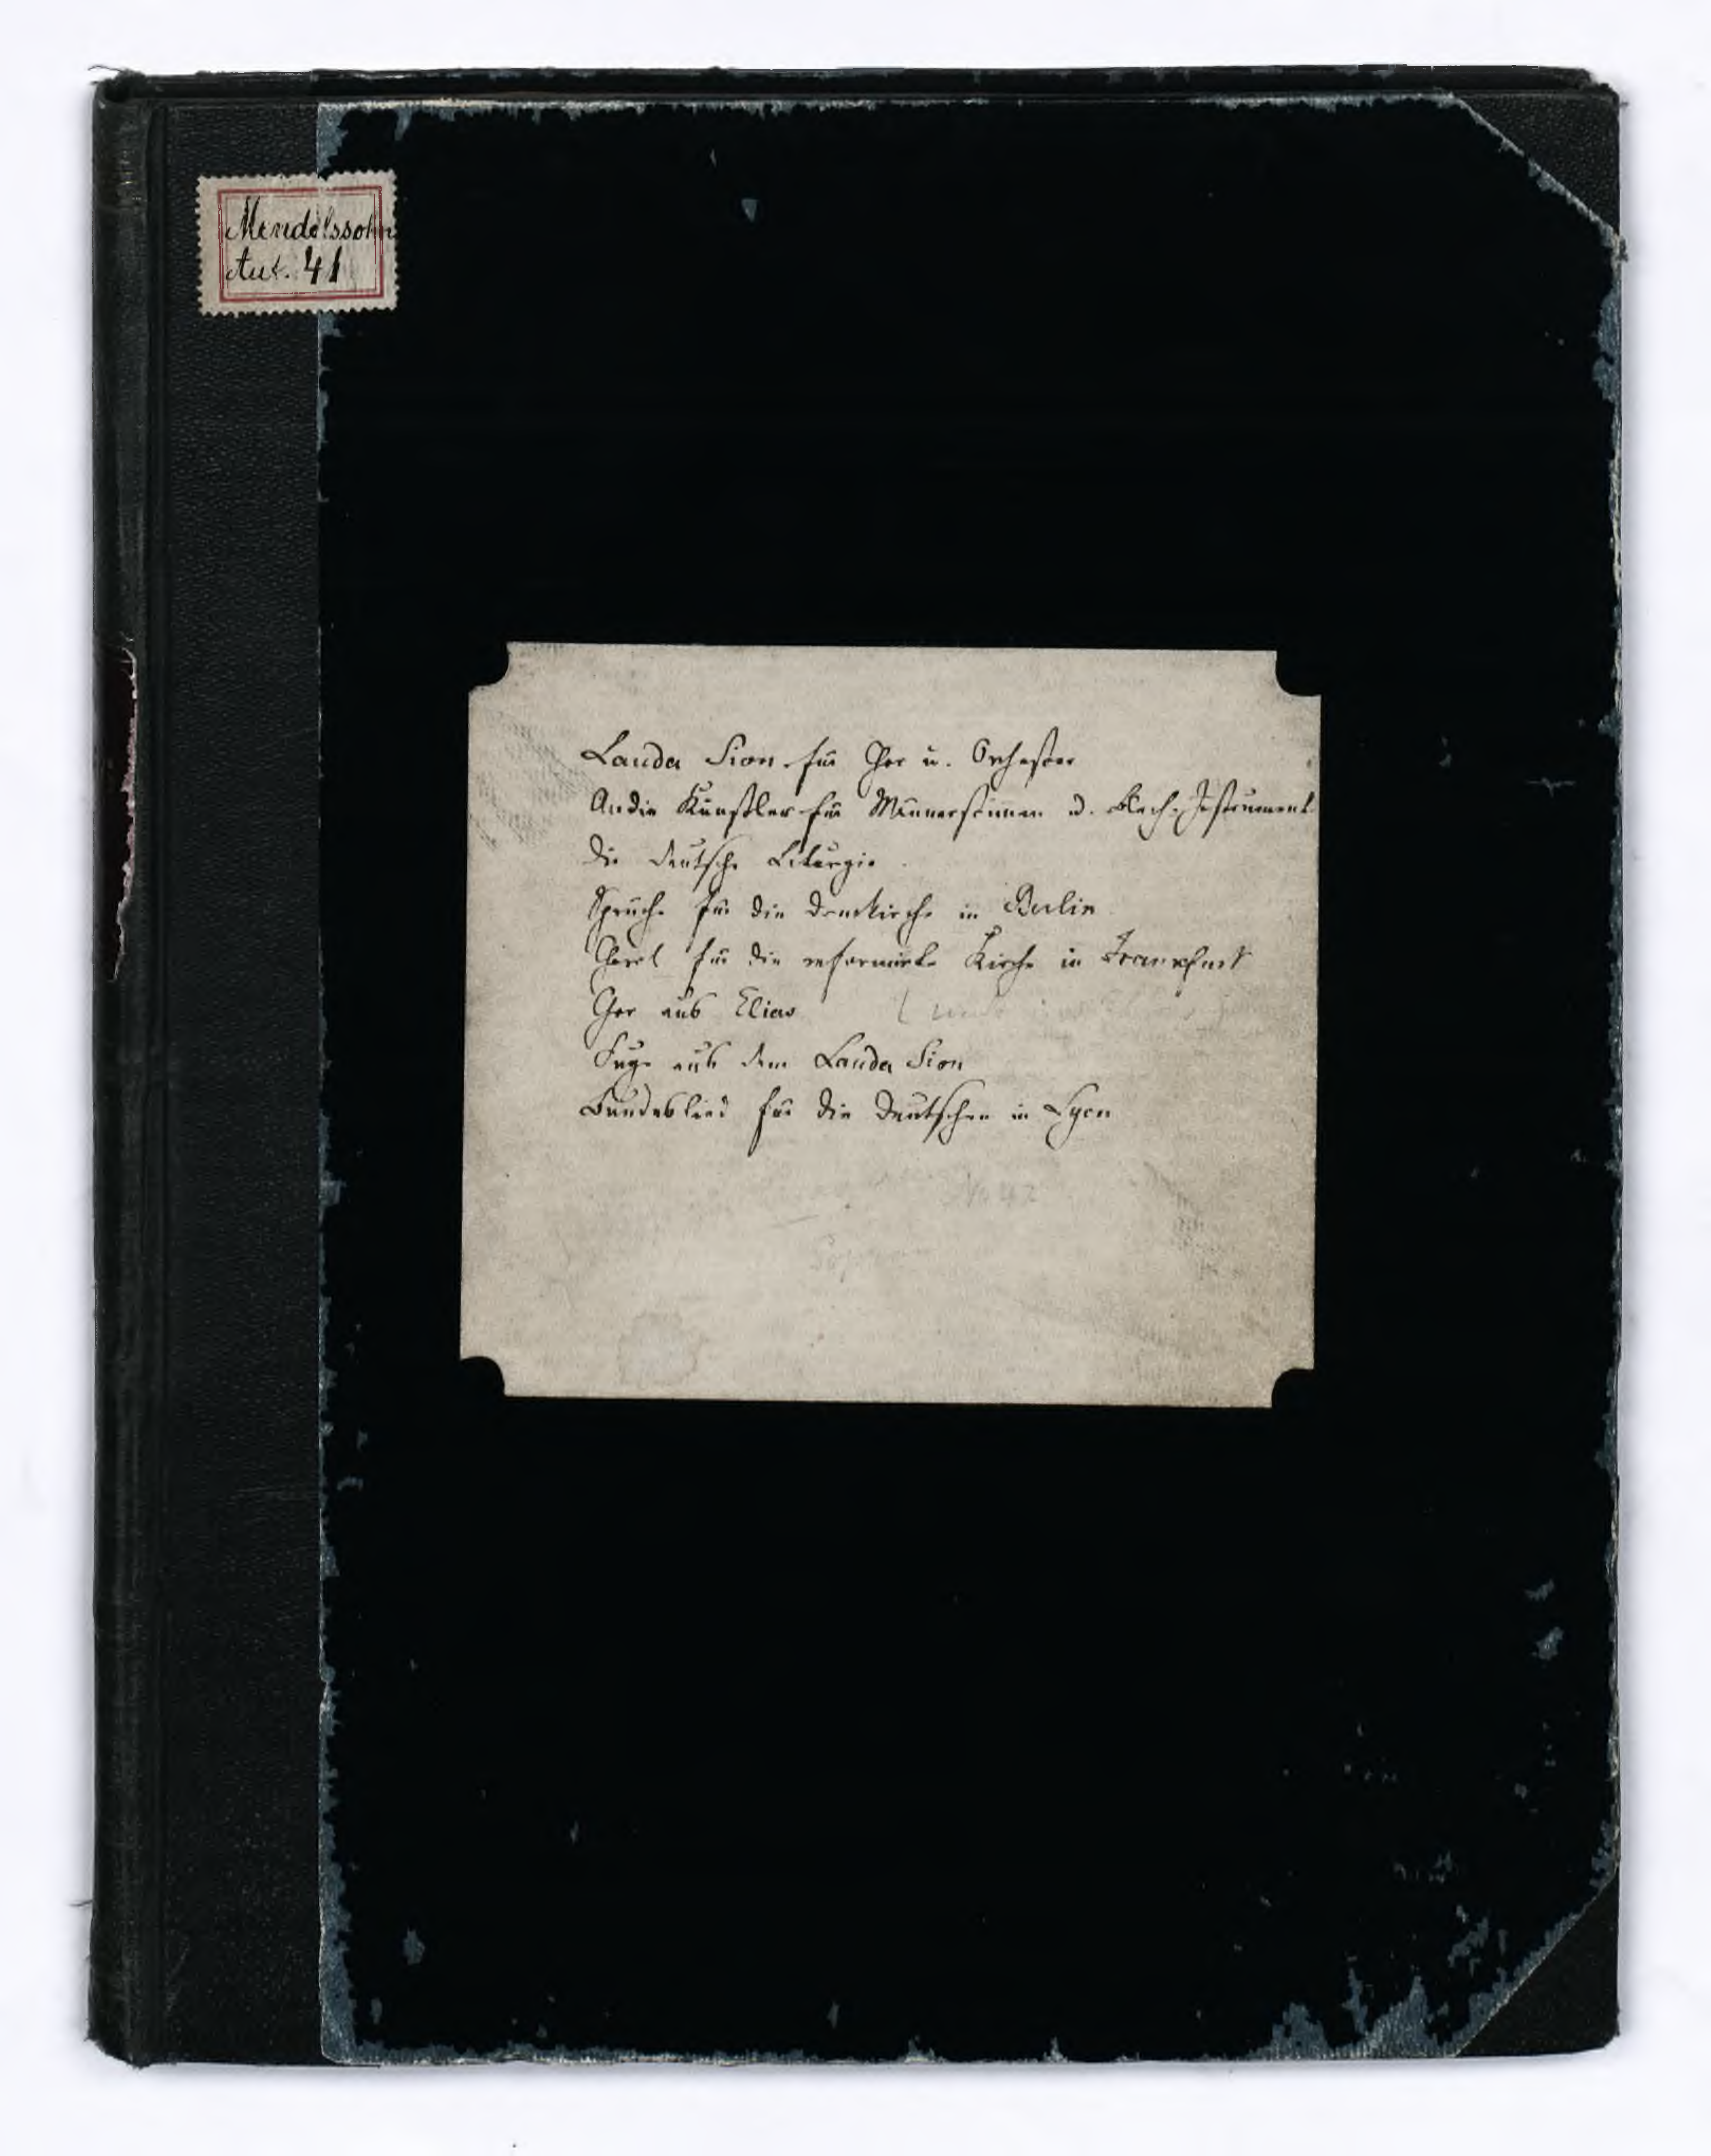 Mendelssohn
Aut. 41
Lauda Sion für Chor u. Orchester
An die Künstler für Männerstimmen u. Blech-Instrument
Die deutsche Liturgie
Sprüche für die Domkirche in Berlin
Choral für die reformirte Kirche in Frankfurt
Chor aus Elias
Fuge aus dem Lauda Sion
Bundeslied für die Deutschen in Lyon
No 42